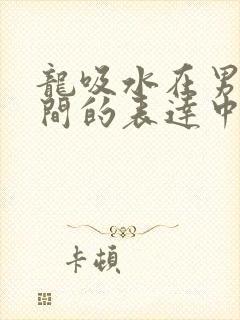 龍吸水在男
間的表達中
卡頓